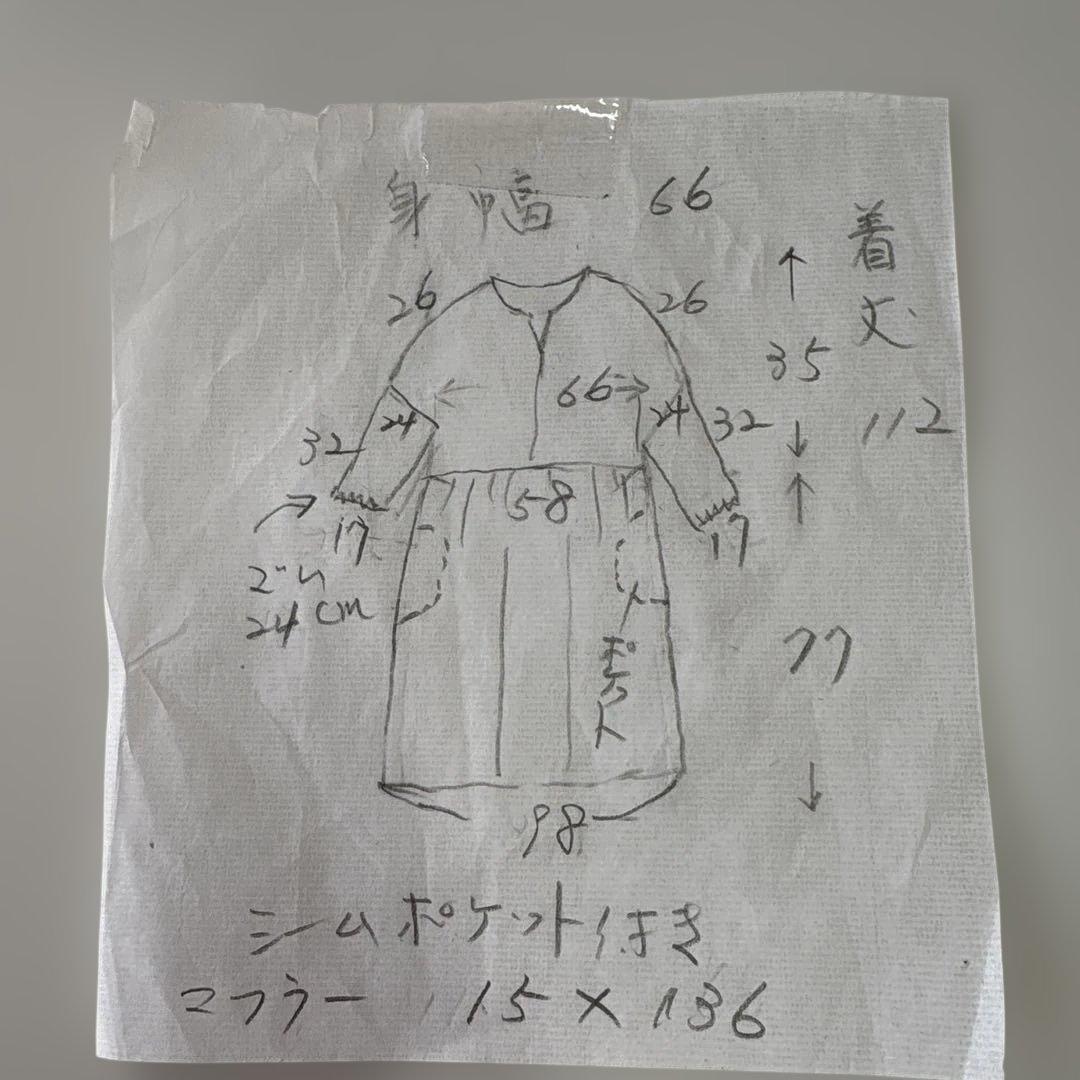 身幅 66
着丈
112
26
26
35
66
24
24
32
32
58
17
17
24cm
77
ポケット
98
シームポケット付き
マフラー 15×136